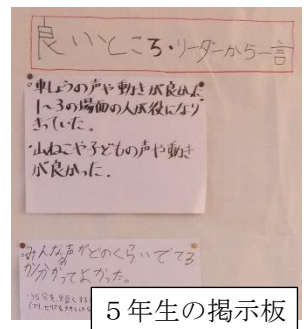 良いところ・リーダーから一言
・車しょうの声や動きが良かった
1〜3の場面の人が役になり
きっていた。
・山ねこや子どもの声や動き
が良かった。
・みんな声がどのくらいでてる
か分かってよかった。
5年生の掲示板